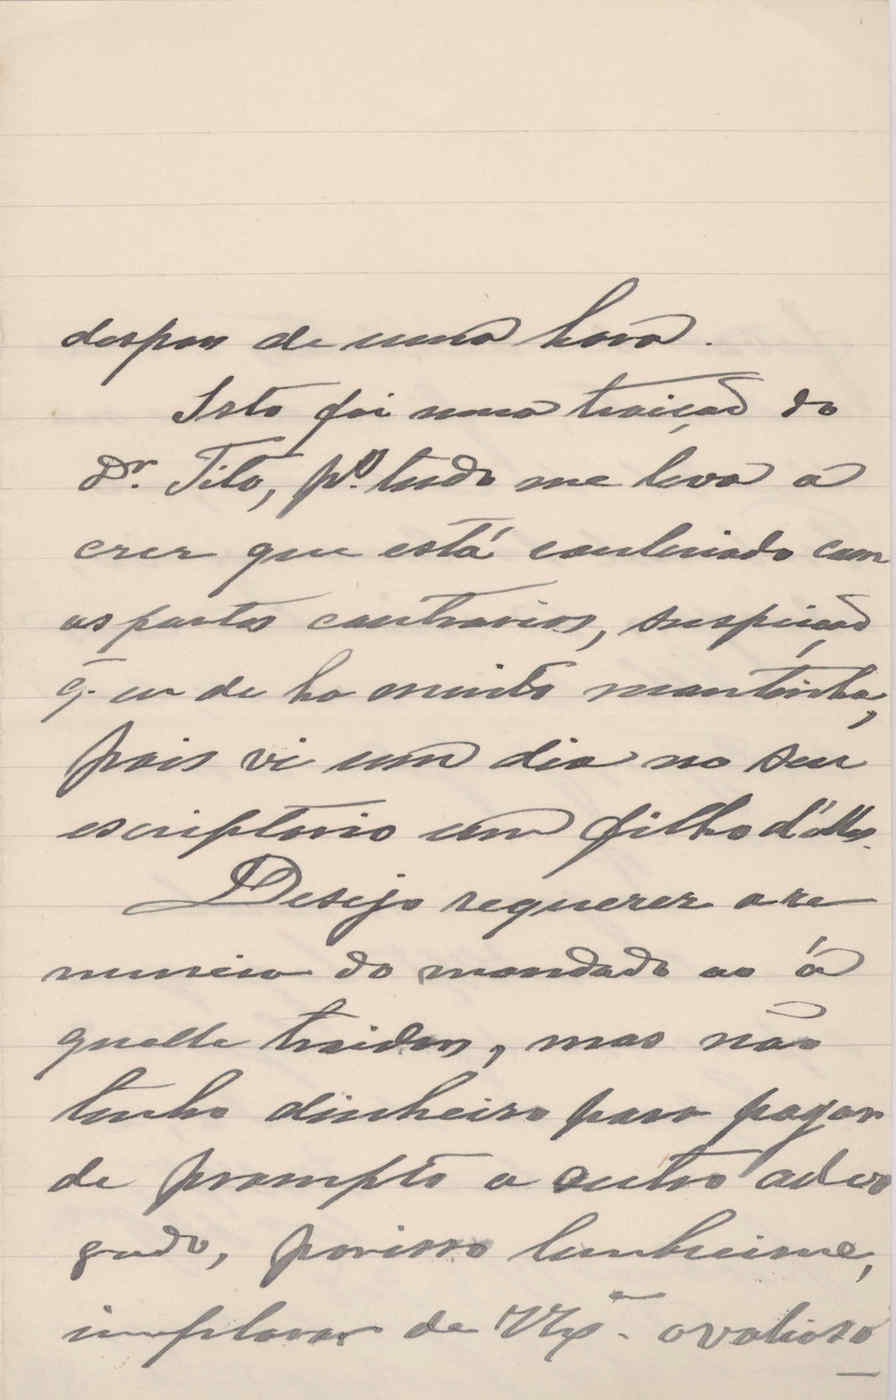 despois de uma hora.
Isto foi uma traição do
Dr. Tito, pº. tudo me leva a
crer que está combinado com
as partes contrarias, suspeição
q. eu de ha muito mantinha,
pois vi um dia no seu
escriptorio um filho d'ellas.
Desejo requerer a re
nuncia do mandado ao á
quelle traidor, mas não
tenho dinheiro para pagar
de prompto a outro advo
gado, porisso lembreime,
implorar de o valioso